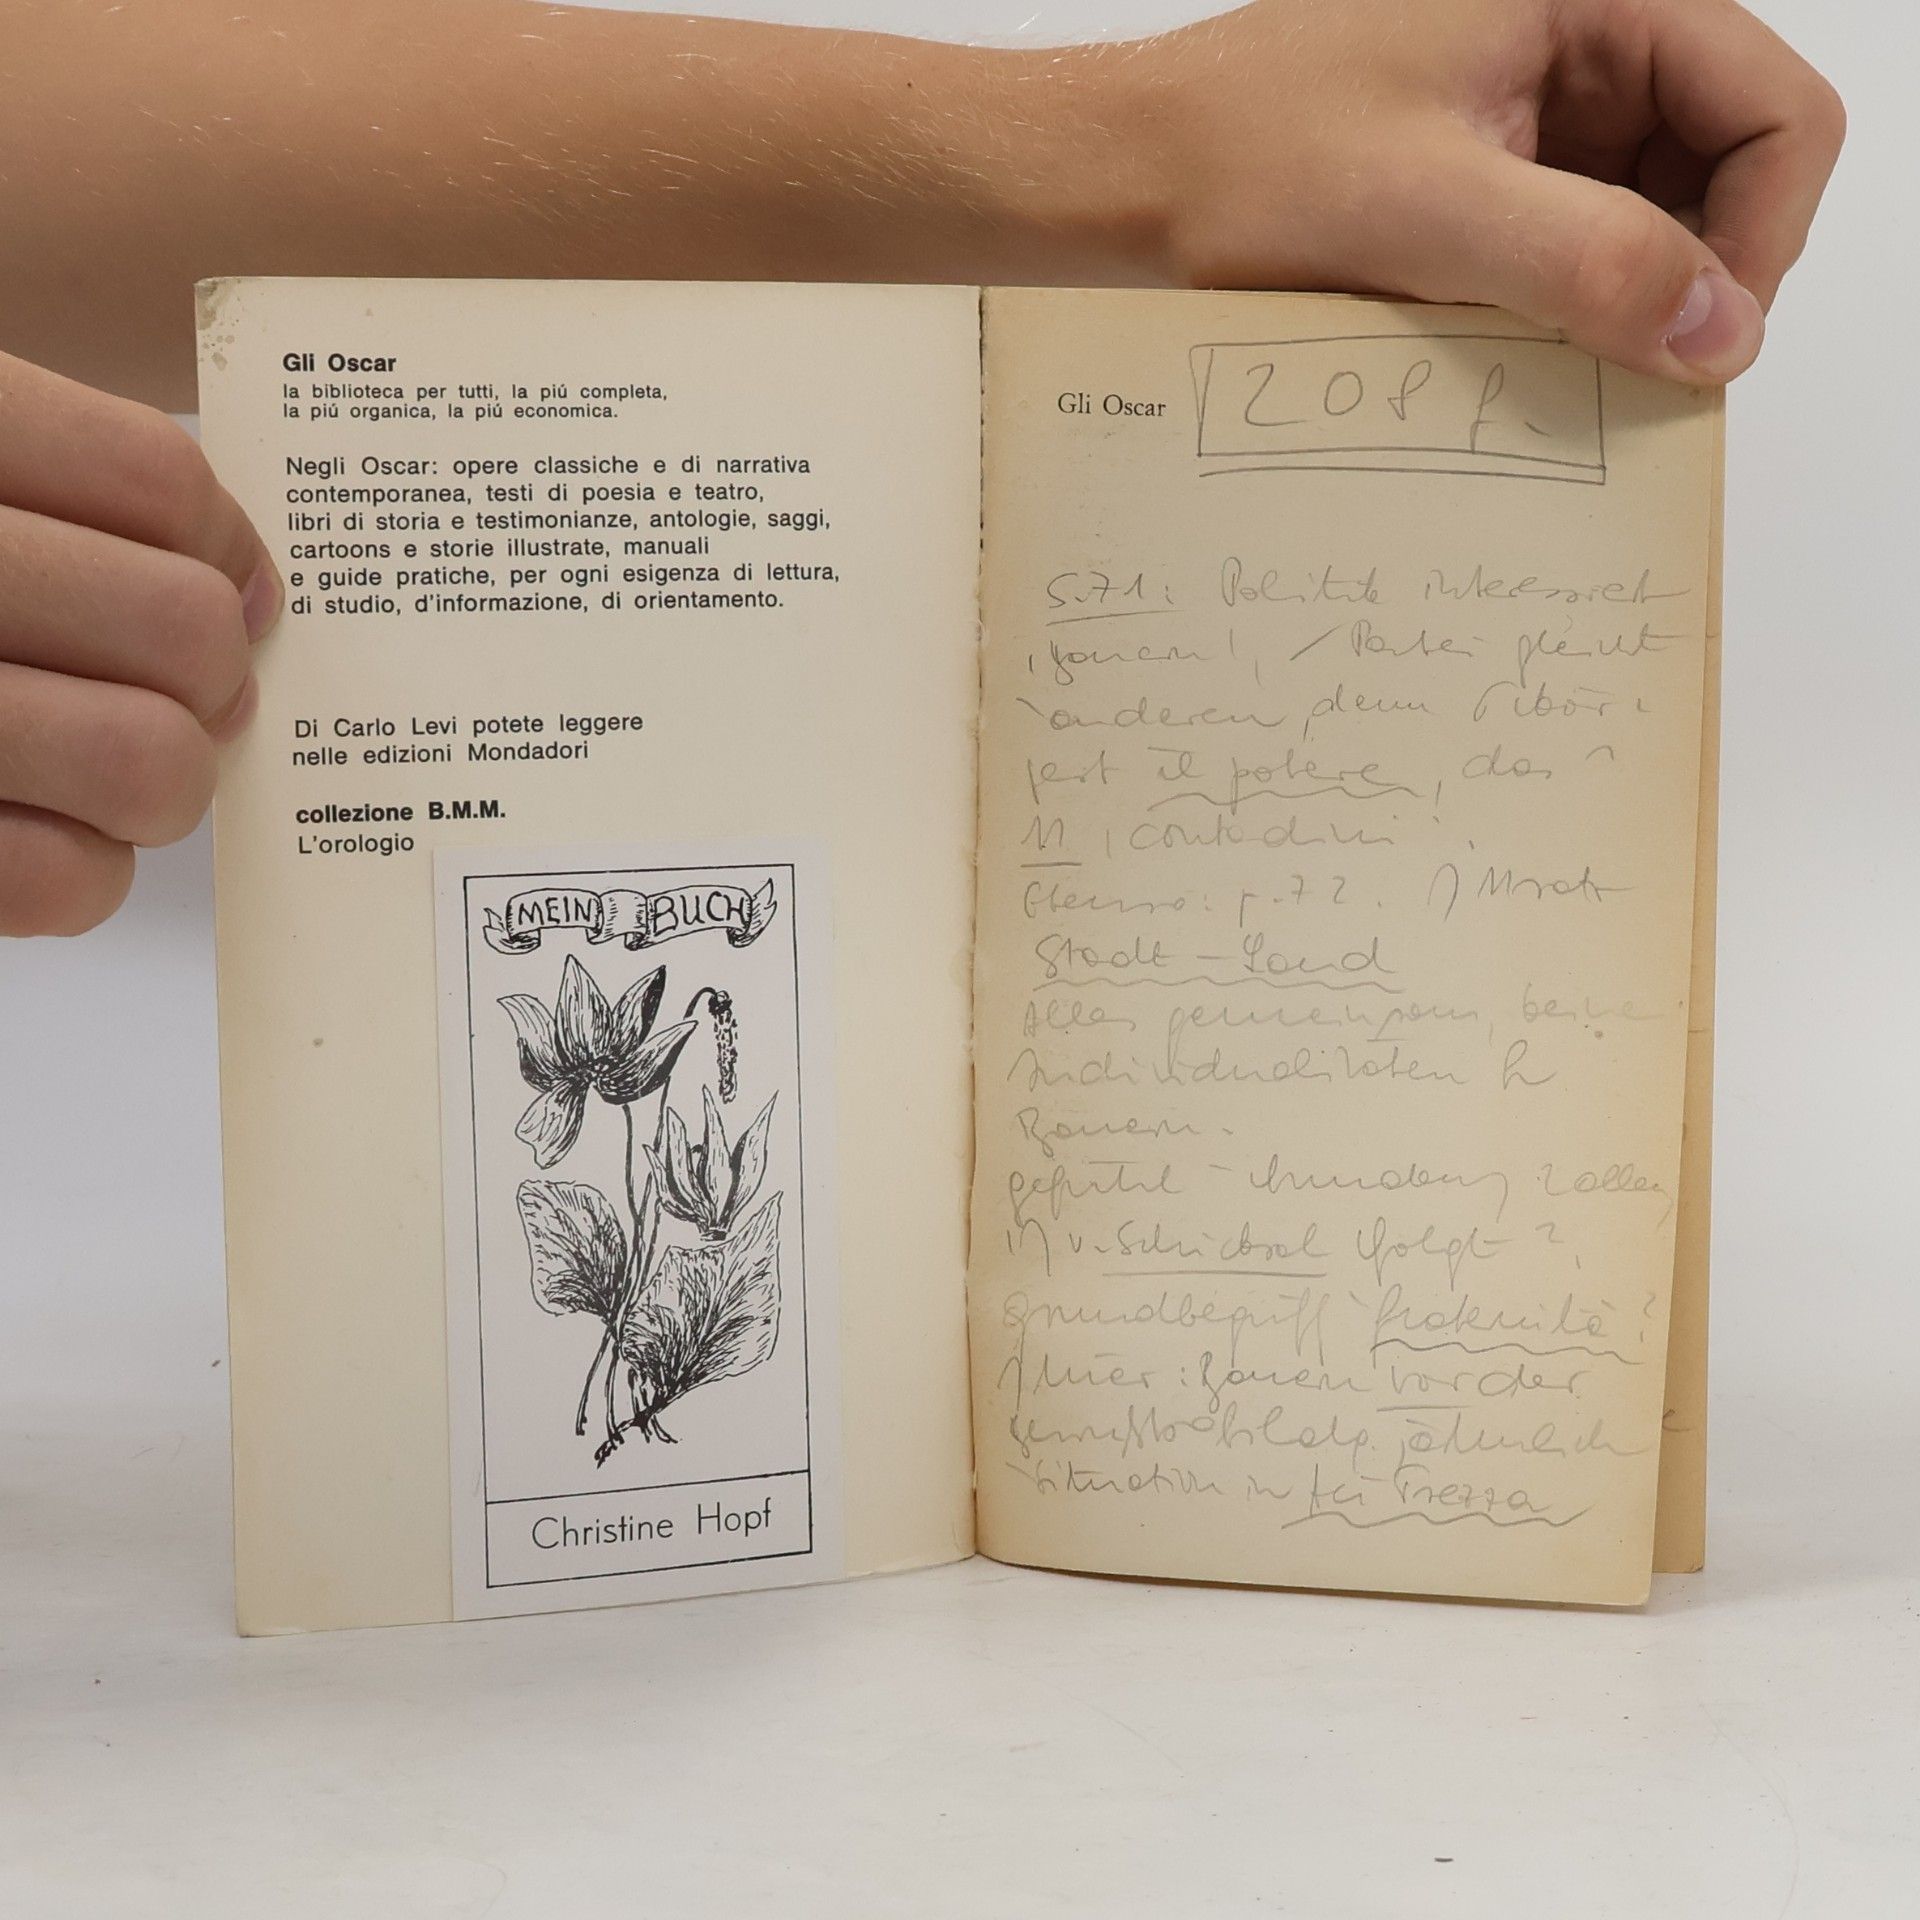 Gli Oscar
la biblioteca per tutti, la piú completa,
la piú organica, la piú economica.
Negli Oscar: opere classiche e di narrativa
contemporanea, testi di poesia e teatro,
libri di storia e testimonianze, antologie, saggi,
cartoons e storie illustrate, manuali
e guide pratiche, per ogni esigenza di lettura,
di studio, d'informazione, di orientamento.
Di Carlo Levi potete leggere
nelle edizioni Mondadori
collezione B.M.M.
L'orologio
MEIN BUCH
Christine Hopf
Gli Oscar
208 f.
S. 71: Politik interessiert
Partei gleicht
anderen, denn
il potere, das
contadini
Ebenso: p. 72.
Stadt - Land
Alles gemeinsam, keine
Individualitäten
Bauern.
v. Schicksal folgt?
Grundbegriff fraternità?
hier: Bauern vor der
ähnliche
Situation in Aci Trezza